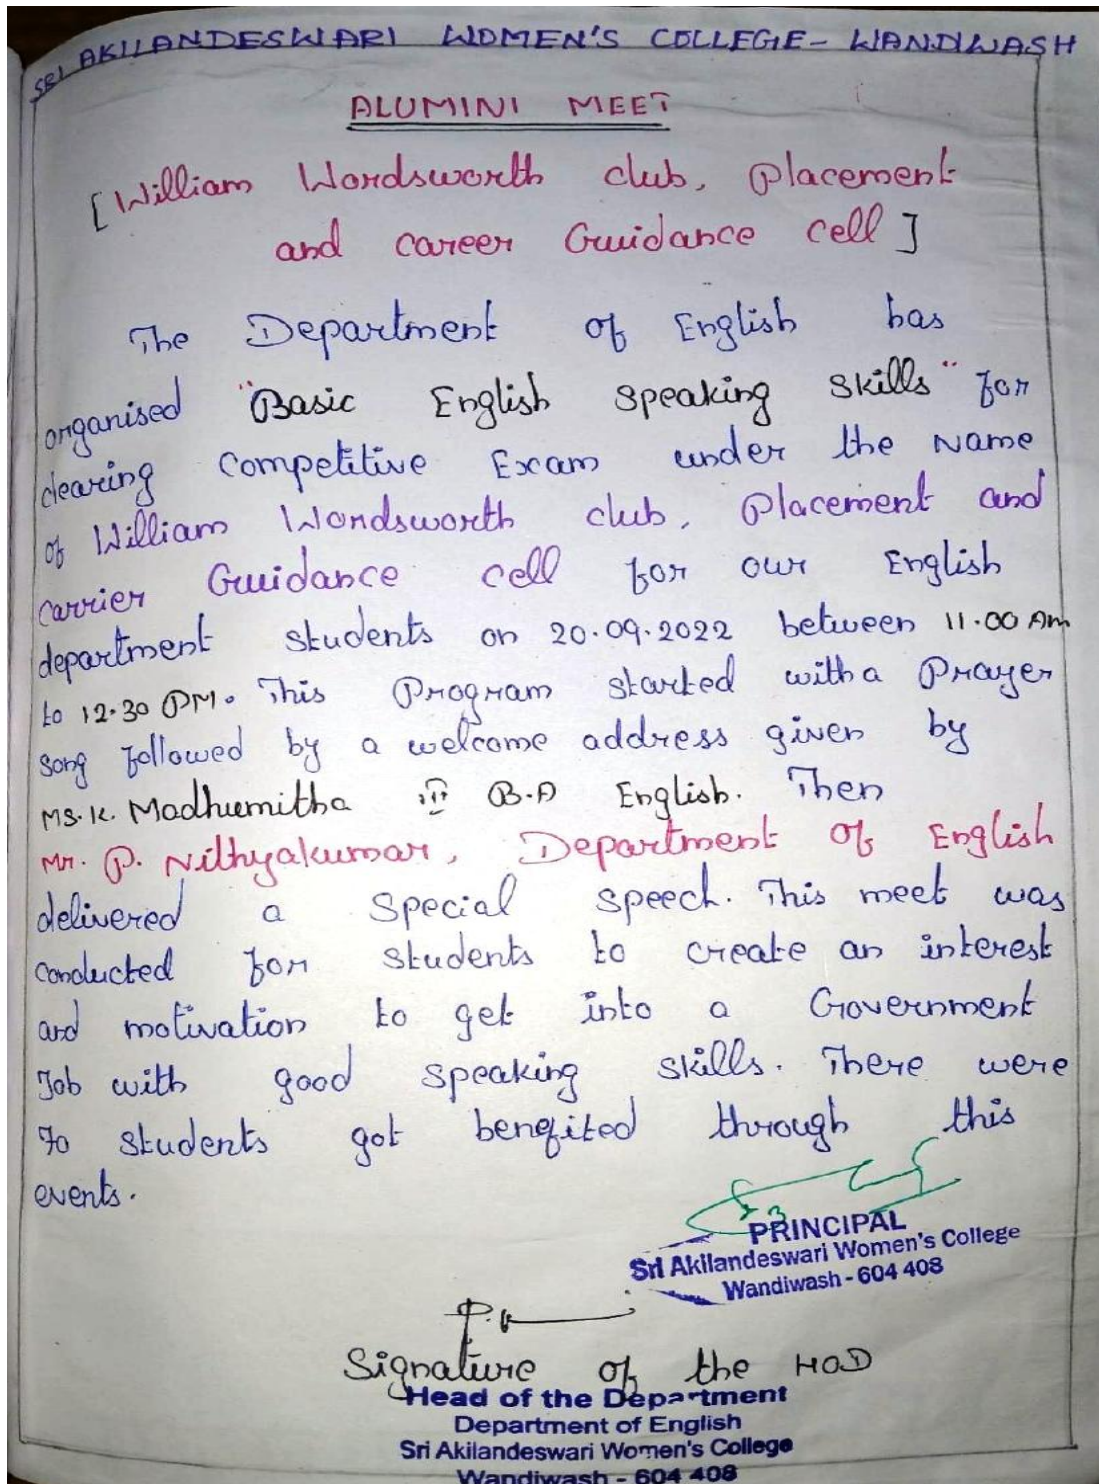 SRI AKILANDESWARI WOMEN'S COLLEGE - WANDIWASH
ALUMINI MEET
[William Wordsworth club, Placement
and career Guidance cell]
The Department of English has
organised "Basic English speaking skills" for
clearing Competitive Exam under the Name
of William Wordsworth club, Placement and
carrier Guidance cell for our English
department students on 20.09.2022 between 11.00 Am
to 12.30 PM. This Program started with a Prayer
song followed by a welcome address given by
Ms. K. Madhumitha III B.A English. Then
Mr. P. Nithyakumar, Department of English
delivered a special speech. This meet was
conducted for students to create an interest
and motivation to get into a Government
Job with good speaking skills. There were
70 students got benefited through this
events.
PRINCIPAL
Sri Akilandeswari Women's College
Wandiwash - 604 408
Signature of the HOD
Head of the Department
Department of English
Sri Akilandeswari Women's College
Wandiwash - 604 408